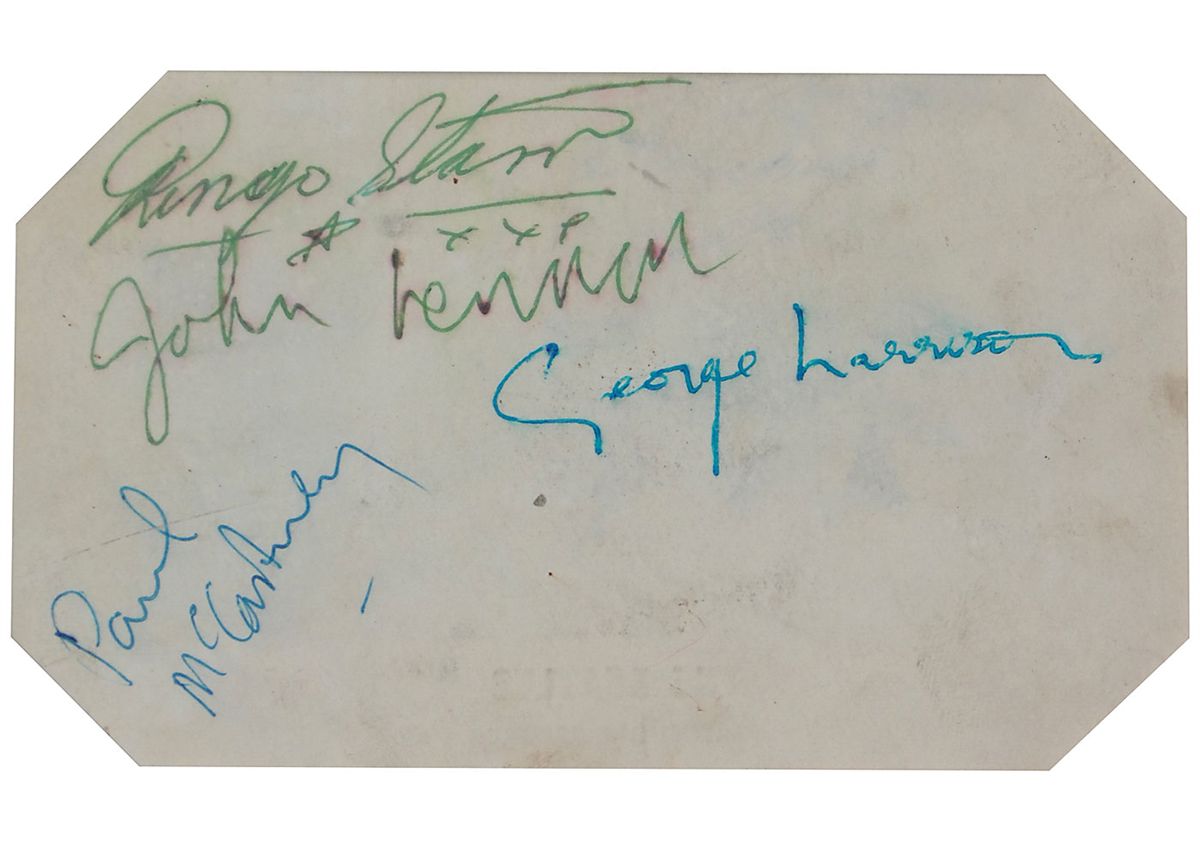 Ringo Starr
John Lennon
xxx
George Harrison
Paul
McCartney